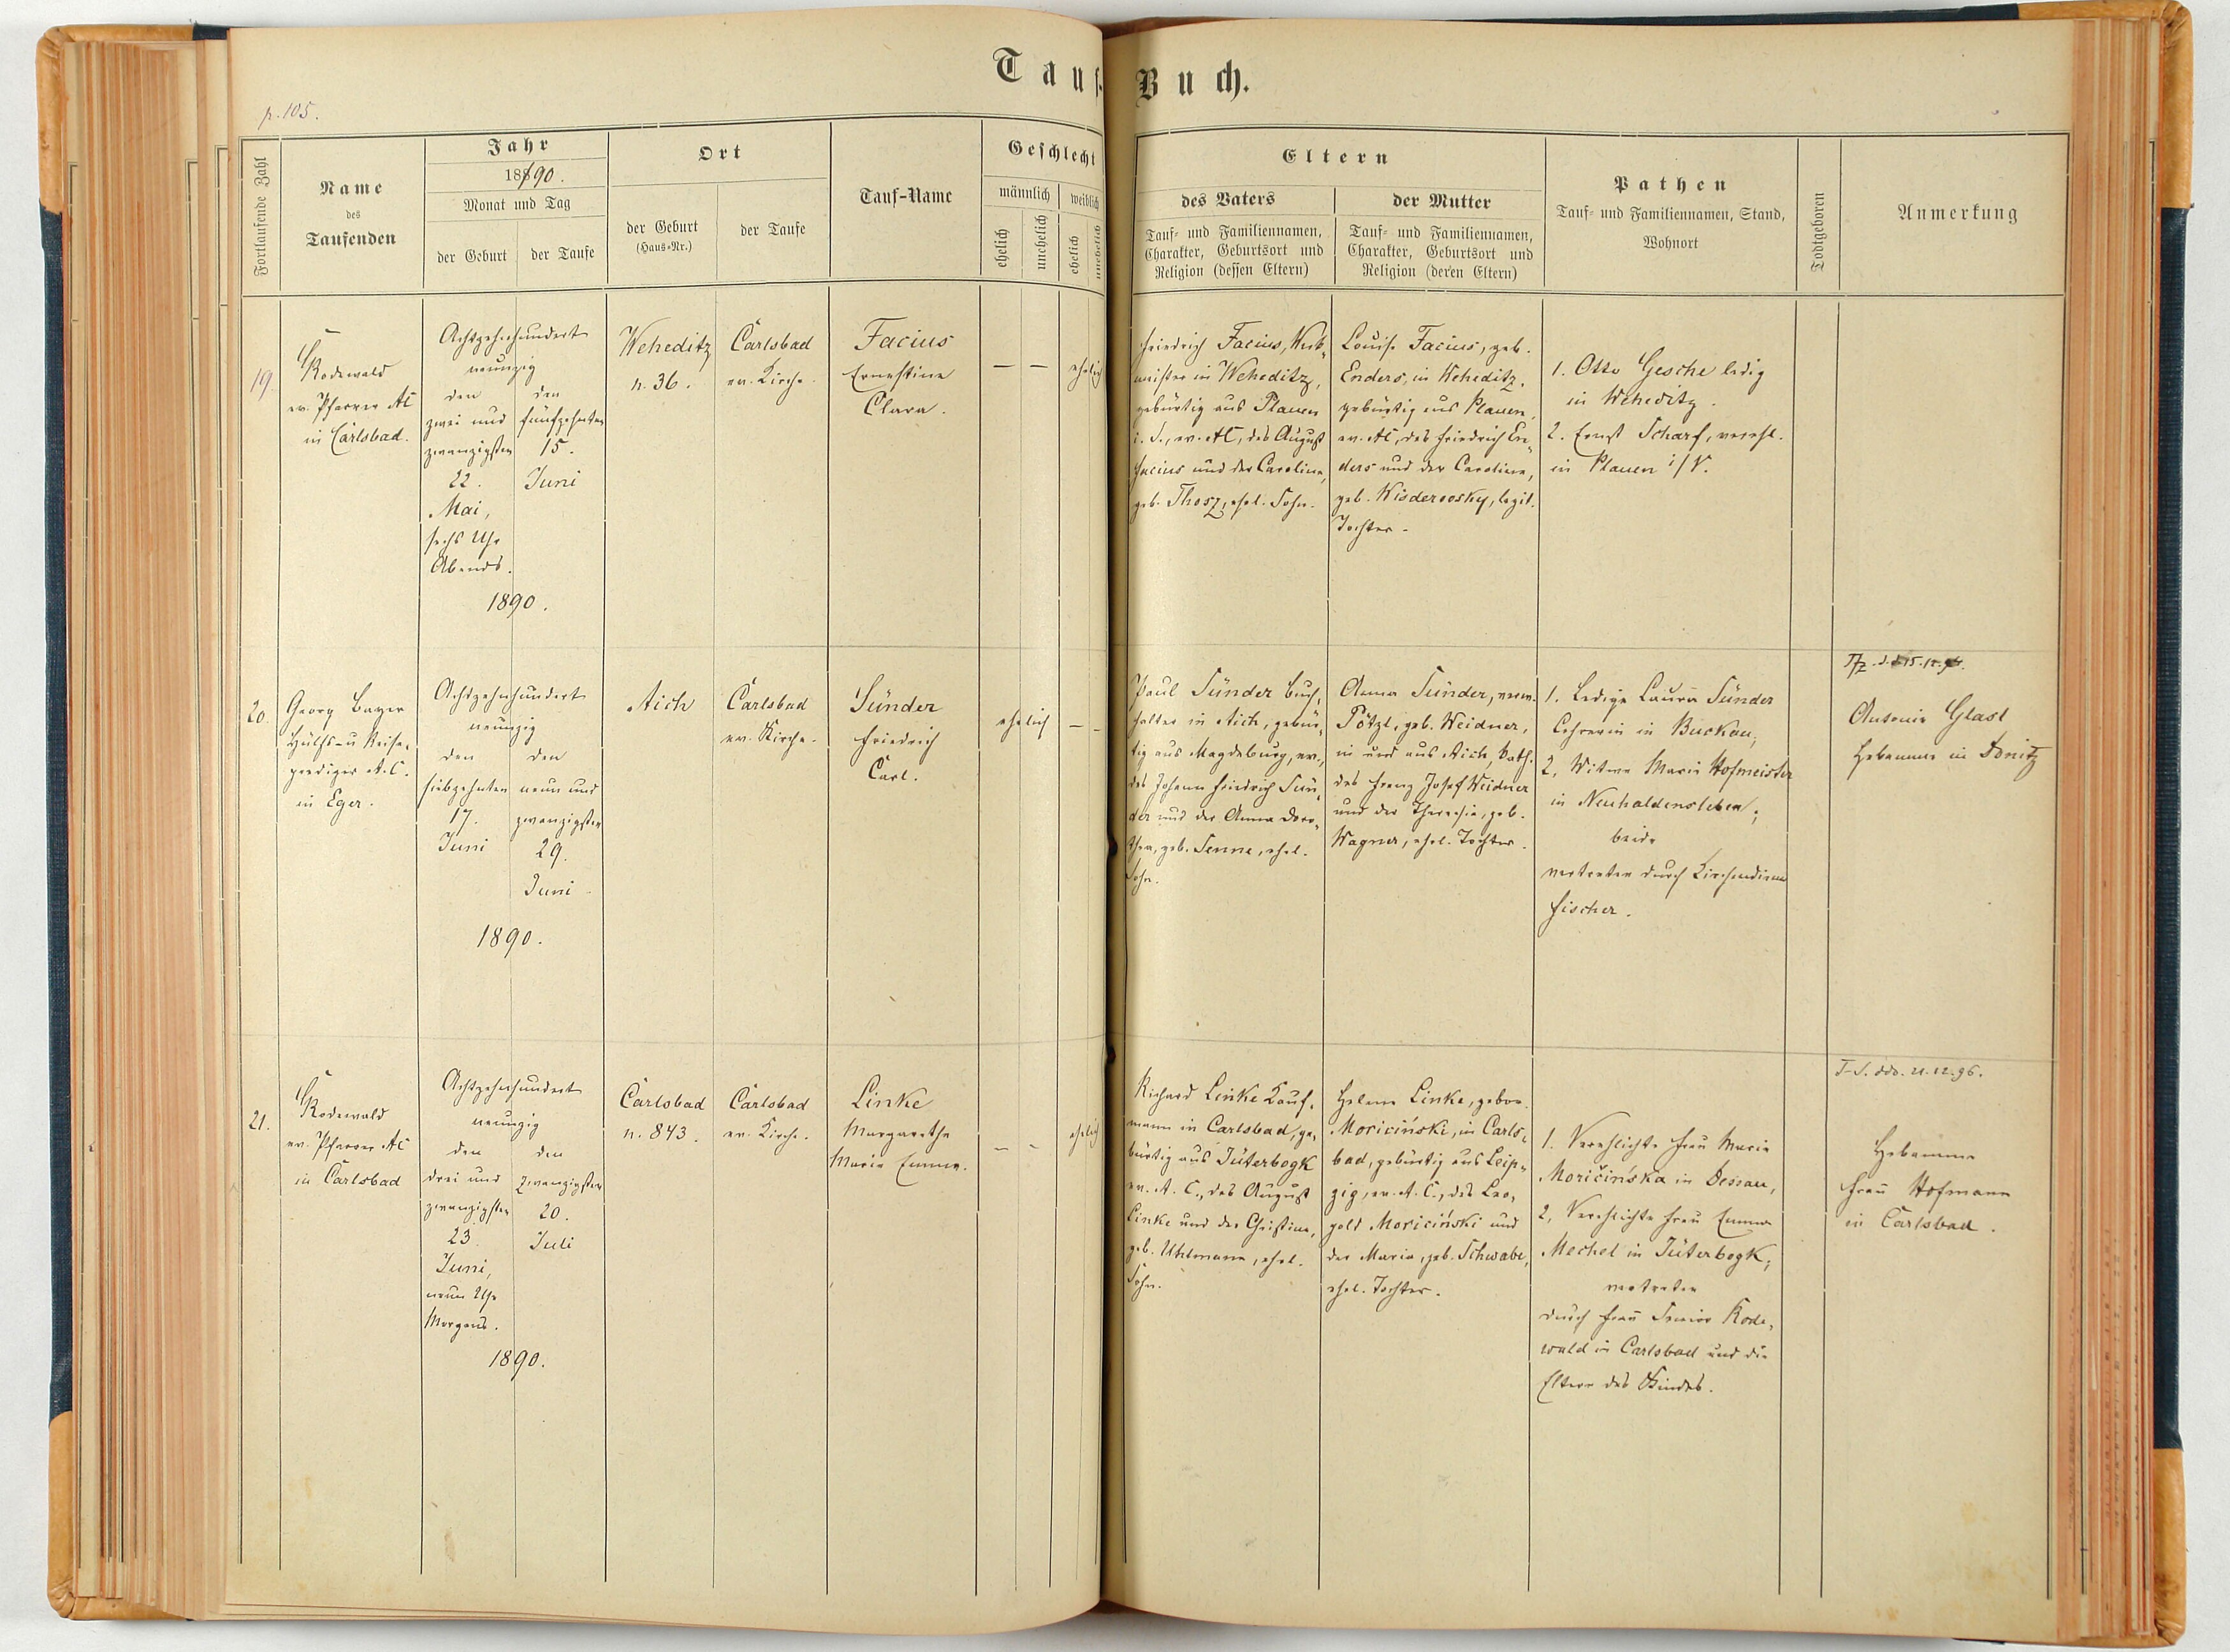 Tauf-Buch.
p. 105.
Fortlaufende Zahl
Name
des
Taufenden
Jahr
1890.
Monat und Tag
der Geburt
der Taufe
Ort
der Geburt
(Haus-Nr.)
der Taufe
Tauf-Name
Geschlecht
männlich
weiblich
ehelich
unehelich
ehelich
unehelich
Eltern
des Vaters
Tauf- und Familiennamen,
Charakter, Geburtsort und
Religion (dessen Eltern)
der Mutter
Tauf- und Familiennamen,
Charakter, Geburtsort und
Religion (deren Eltern)
Pathen
Tauf- und Familiennamen, Stand,
Wohnort
Todtgeboren
Anmerkung
19.
Rodewald
ev. Pfarrer AC
in Carlsbad.
Achtzehnhundert
neunzig
den
zwei und
zwanzigsten
22.
Mai,
sechs Uhr
Abends.
den
fünfzehnten
15.
Juni
1890.
Weheditz
n. 36.
Carlsbad
ev. Kirche.
Facius
Ernestine
Clara.
— —
ehelich
Friedrich Facius, Werk-
meister in Weheditz,
gebürtig aus Plauen
i. S., ev. AC, des August
Facius und der Caroline,
geb. Thosz, ehel. Sohn.
Louise Facius, geb.
Enders, in Weheditz,
gebürtig aus Plauen,
ev. AC, des Friedrich En-
ders und der Caroline,
geb. Wisderovsky, legit.
Tochter.
1. Otto Gesche ledig
in Weheditz.
2. Ernst Scharf, verehl.
in Plauen i/V.
20.
Georg Bayer
Hülfs- u Reise-
prediger A.C.
in Eger.
Achtzehnhundert
neunzig
den
siebzehnten
17.
Juni
den
neun und
zwanzigsten
29.
Juni
1890.
Aich
Carlsbad
ev. Kirche.
Sünder
Friedrich
Carl.
ehelich
— —
Paul Sünder Buch-
halter in Aich, gebür-
tig aus Magdeburg, ev.,
des Johann Friedrich Sün-
der und der Anna Doro-
thea, geb. Senne, ehel.
Sohn.
Anna Sünder, verw.
Pötzl, geb. Weidner,
in und aus Aich, kath.
des Franz Josef Weidner
und der Theresia, geb.
Wagner, ehel. Tochter.
1. Ledige Laura Sünder
Lehrerin in Buckau;
2. Witwe Marie Hofmeister
in Neuhaldensleben;
beide
vertreten durch Kirchendiener
Fischer.
Antonie Glasl
Hebamme in Donitz
21.
Rodewald
ev. Pfarrer AC
in Carlsbad
Achtzehnhundert
neunzig
den
drei und
zwanzigsten
23.
Juni,
neun Uhr
Morgens.
den
zwanzigsten
20.
Juli
1890.
Carlsbad
n. 843.
Carlsbad
ev. Kirche.
Linke
Margarethe
Maria Emma.
— —
ehelich
Richard Linke Kauf-
mann in Carlsbad, ge-
bürtig aus Jüterbogk
ev. A. C., des August
Linke und der Christine,
geb. Uhlmann, ehel.
Sohn.
Helene Linke, gebor.
Moriciński, in Carls-
bad, gebürtig aus Leip-
zig, ev. A. C., des Leo-
pold Moriciński und
der Maria, geb. Schwabe,
ehel. Tochter.
1. Verehlichte Frau Maria
Moričińska in Dessau,
2. Verehlichte Frau Emma
Mechel in Jüterbogk;
vertreten
durch Frau Senior Rode-
wald in Carlsbad und die
Eltern des Kindes.
T-S. ddo. 21.12.96.
Hebamme
Frau Hofmann
in Carlsbad.